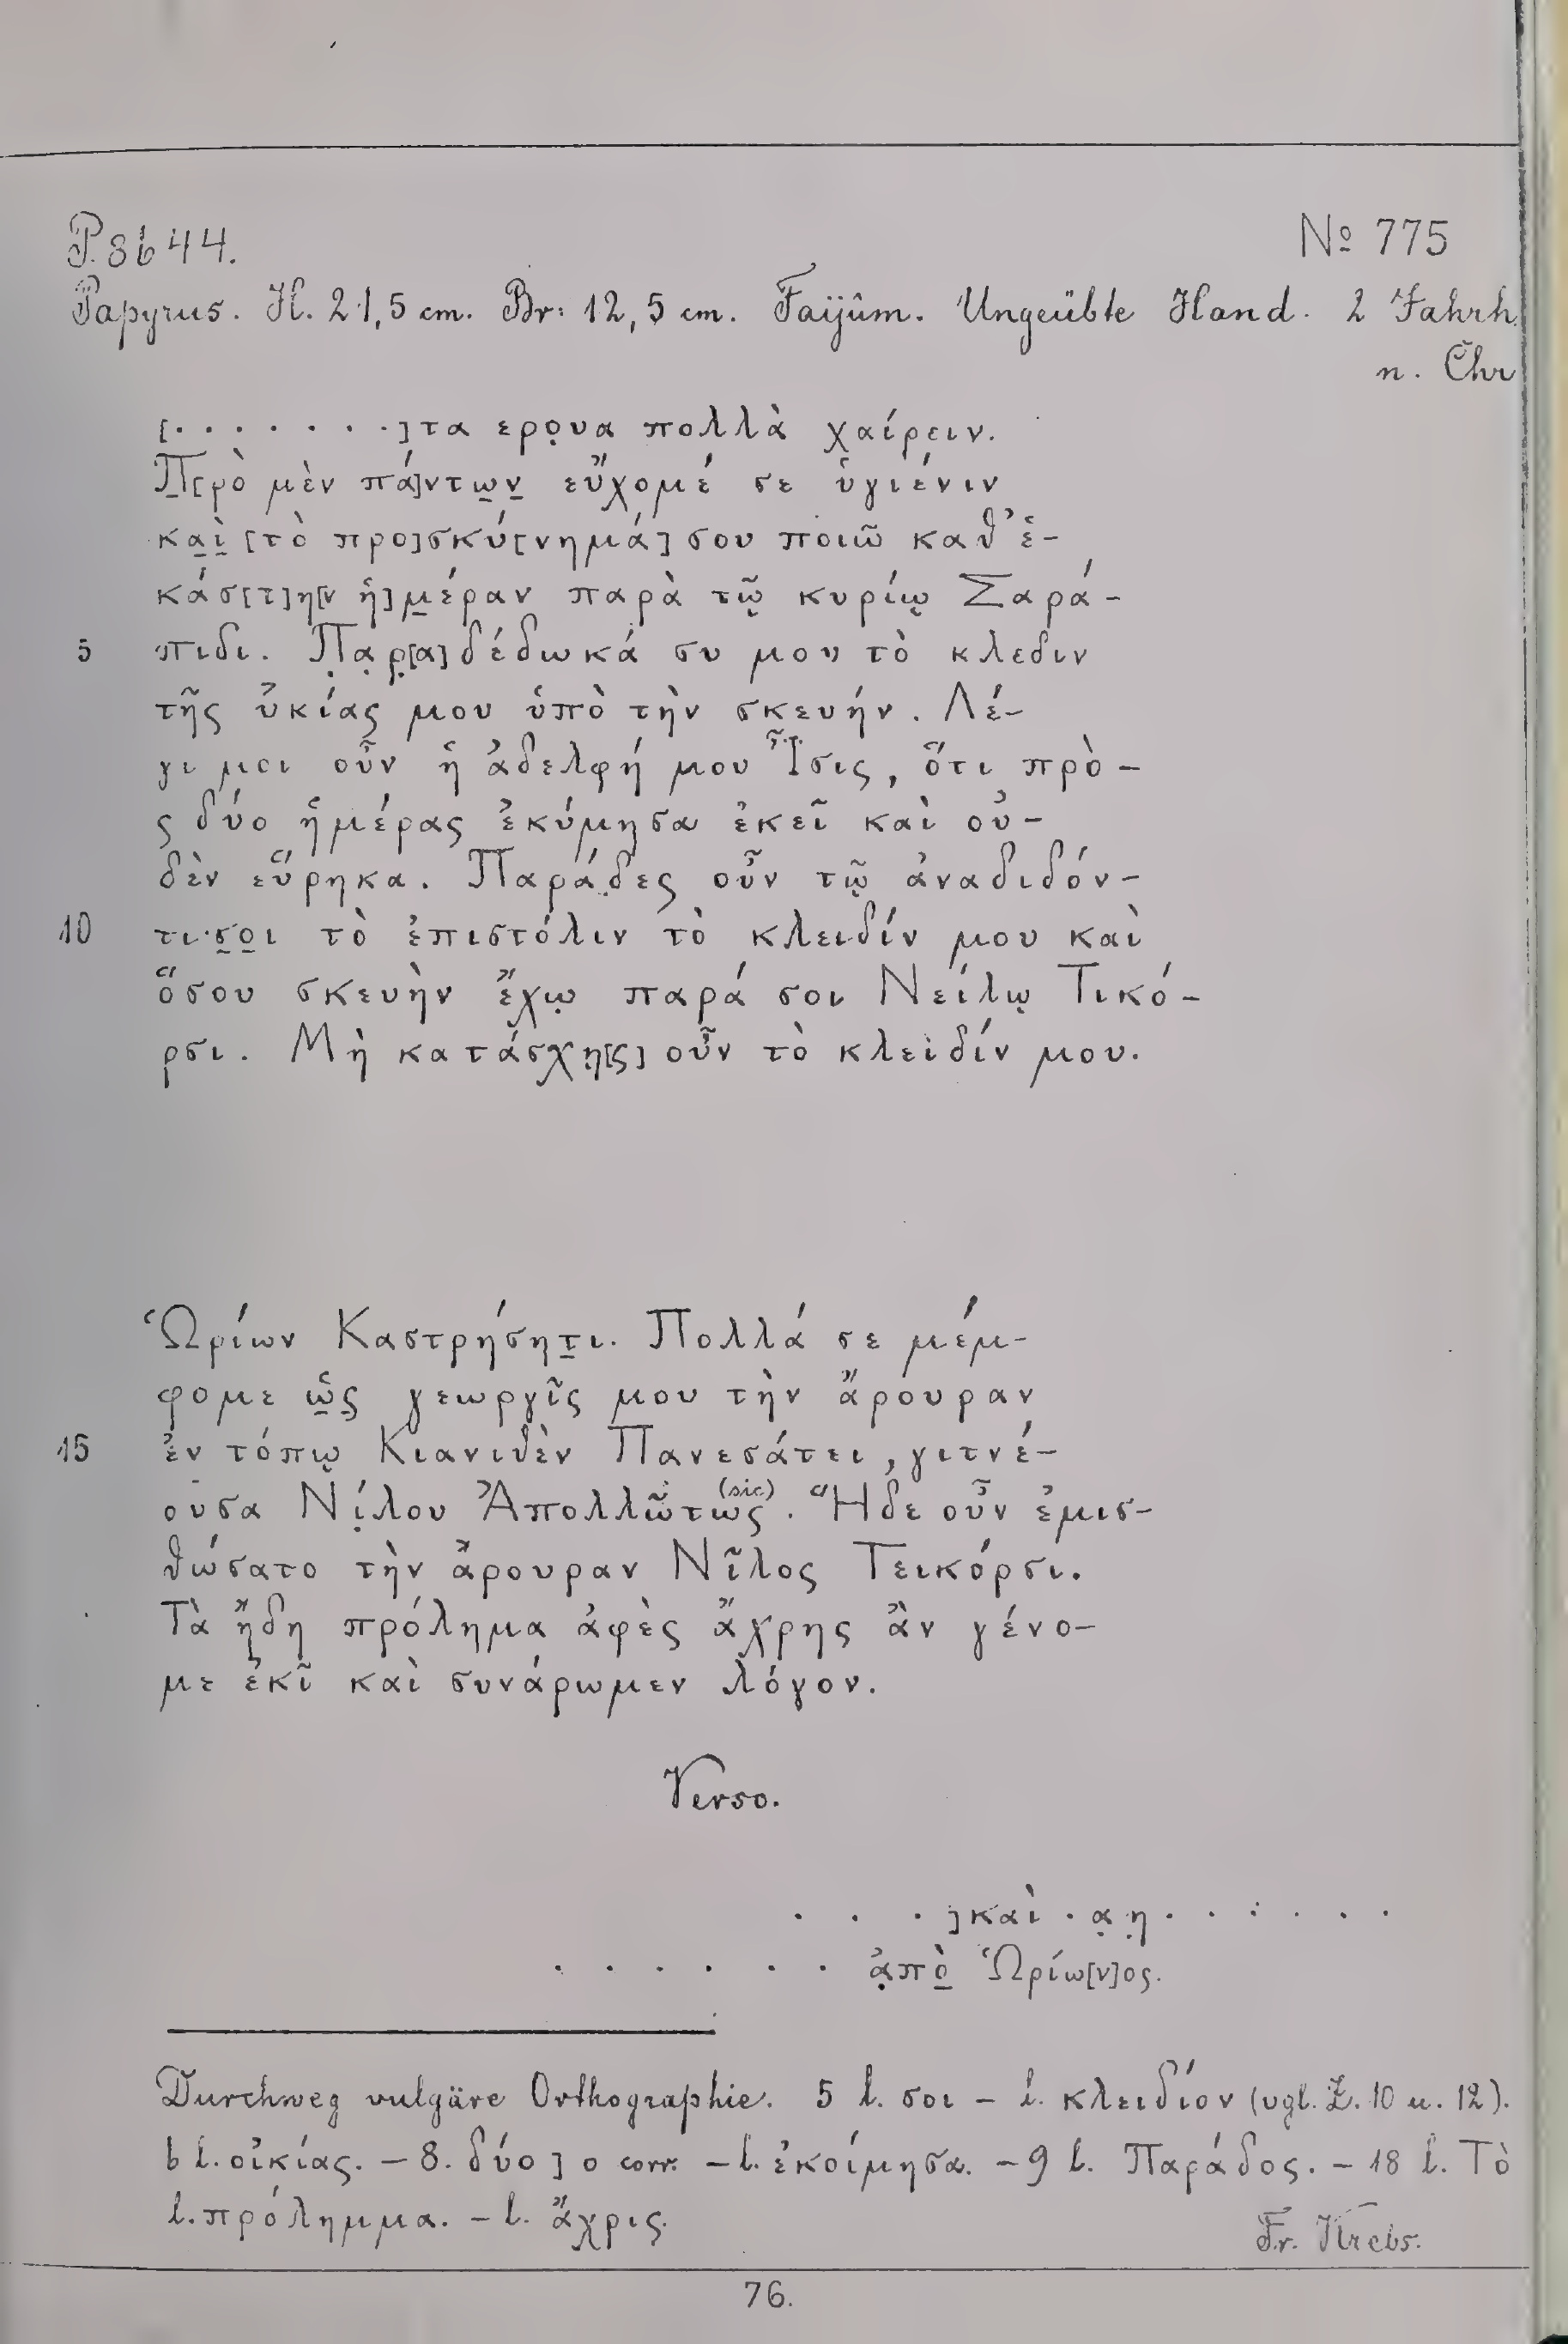 P. 8644.
№ 775
Papyrus. H. 21,5 cm. Br: 12,5 cm. Faijûm. Ungeübte Hand. 2 Jahrh.
n. Chr
[· · · · · · ·]τα ερọυα πολλὰ χαίρειν.
Π[ρὸ μὲν πά]ντω̣ν̣ εὔχομέ σε ὑγιένιν
κα̣ὶ̣ [τὸ προ]σκύ[νημά] σου ποιῶ καθ᾽ ἑ-
κάσ[τ]η[ν ἡ]μ̣έραν παρὰ τῷ κυρίῳ Σαρά-
5 πιδι. Π̣α̣ρ̣[α]δέδωκά συ μου τὸ κλεδιν
τῆς ὐκίας μου ὑπὸ τὴν σκευήν. Λέ-
γι μοι οὖν ἡ ἀδελφή μου Ἶσις, ὅτι πρὸ-
ς δύο ἡμέρας ἐκύμησα ἐκεῖ καὶ οὐ-
δὲν εὕρηκα. Παράδ̣ες οὖν τῷ ἀναδιδόν-
10 τι σ̣ο̣ι τὸ ἐπιστόλιν τὸ κλειδίν μου καὶ
ὅσου σκευὴν ἔχω̣ παρά σοι Νείλῳ Τικό-
ρσι. Μὴ κατάσχῃ[ς] οὖν τὸ κλειδίν μου.
Ὡρίων Καστρήσητ̣ι. Πολλά σε μέμ-
φομε ὡ̣ς̣ γεωργῖς μου τὴν ἄρουραν
15 ἐν τόπῳ Κιανιθὲν Πανεσάτει, γιτνέ-
ουσα Νί̣λου Ἀπολλῶτως (sic). Ἥδε οὖν ἐμισ-
θώσατο τὴν ἄρουραν Νῖλος Τεικόρσι.
Τὰ ἤδη πρόλημα ἀφὲς ἄχρης ἂν γένο-
με ἐκῖ καὶ συνάρωμεν λόγον.
Verso.
· · ·]καὶ · α̣ η̣ · · · · · ·
· · · · · · ἀ̣πὸ̣ Ὡρίω[ν]ος.
Durchweg vulgäre Orthographie. 5 l. σοι – l. κλειδίον (vgl. Z. 10 u. 12).
6 l. οἰκίας. – 8. δύο] ο corr. – l. ἐκοίμησα. – 9 l. Παράδος. – 18 l. Τὸ
l. πρόλημμα. – l. ἄχρις.
Fr. Krebs.
76.